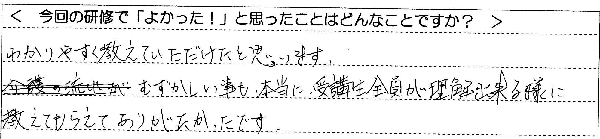 < 今回の研修で「よかった！」と思ったことはどんなことですか？ >
わかりやすく教えていただけたと思います。
むずかしい事も、本当に、受講生全員が理解出来る様に
教えてもらえてありがたかったです。